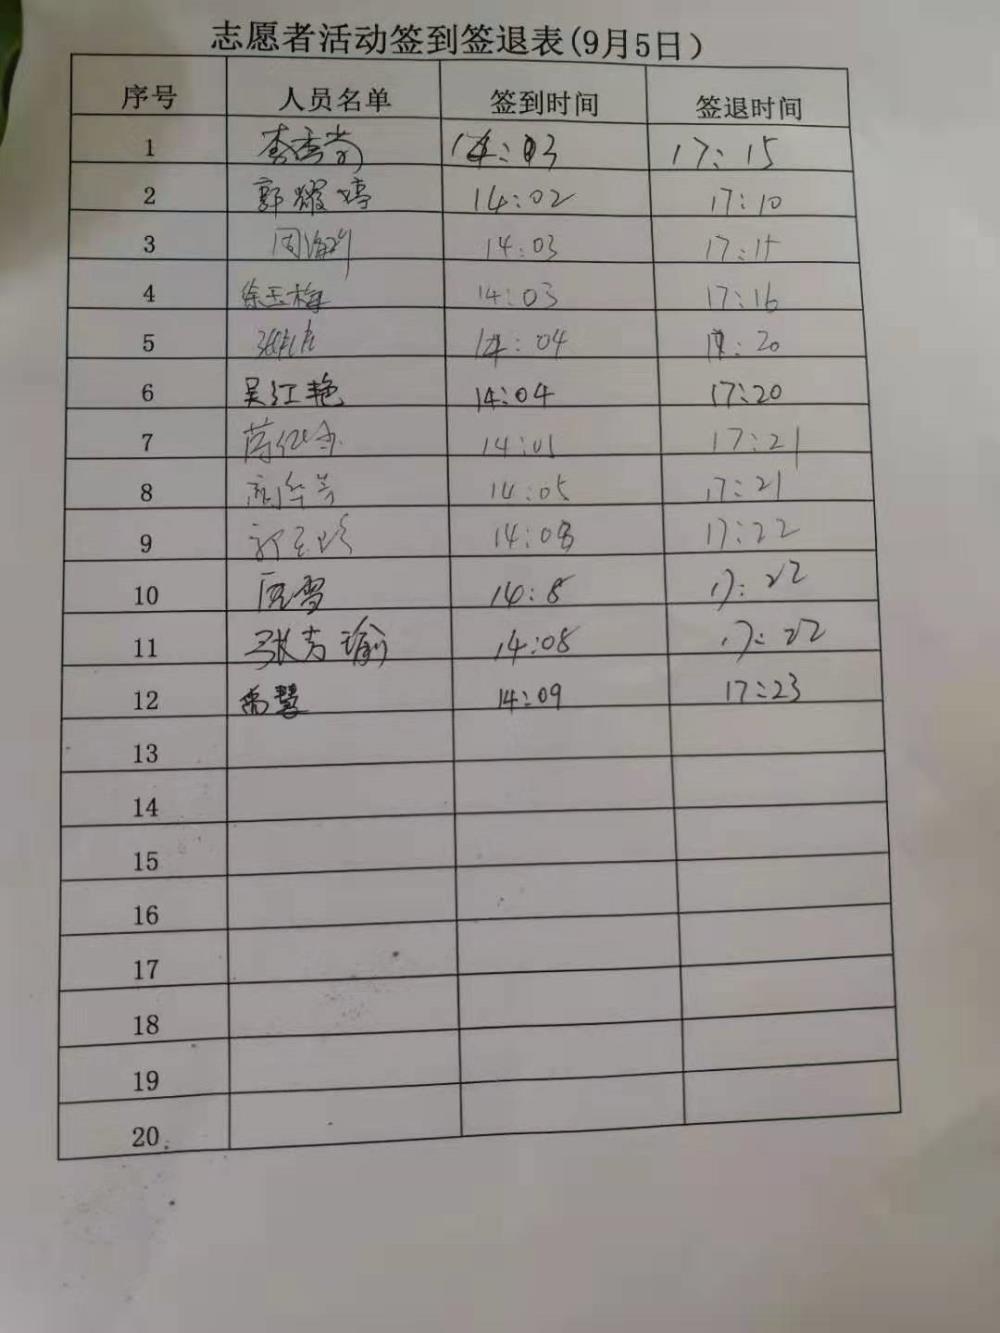 志愿者活动签到签退表(9月5日)
序号 人员名单 签到时间 签退时间
1 李秀芳 14:03 17:15
2 郭耀婷 14:02 17:10
3 周海 14:03 17:15
4 徐玉梅 14:03 17:16
5 张 14:04 17:20
6 吴红艳 14:04 17:20
7 14:05 17:21
8 14:05 17:21
9 14:08 17:22
10 雪 14:8 17:22
11 张芳瑜 14:08 17:22
12 慧 14:09 17:23
13
14
15
16
17
18
19
20